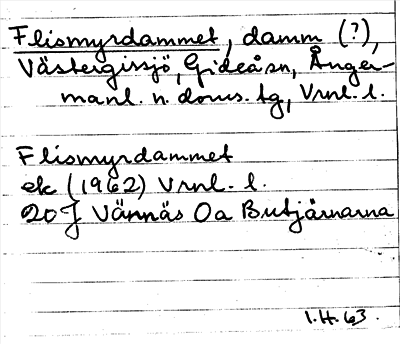 Flismyrdammet, damm (?),
Västergissjö, Gideåsn, Ånger-
manl. n. doms. tg, Vrnl. l.
Flismyrdammet
ek (1962) Vrnl. l.
20 J Vännäs Oa Butjärnarna
I.H. 63.